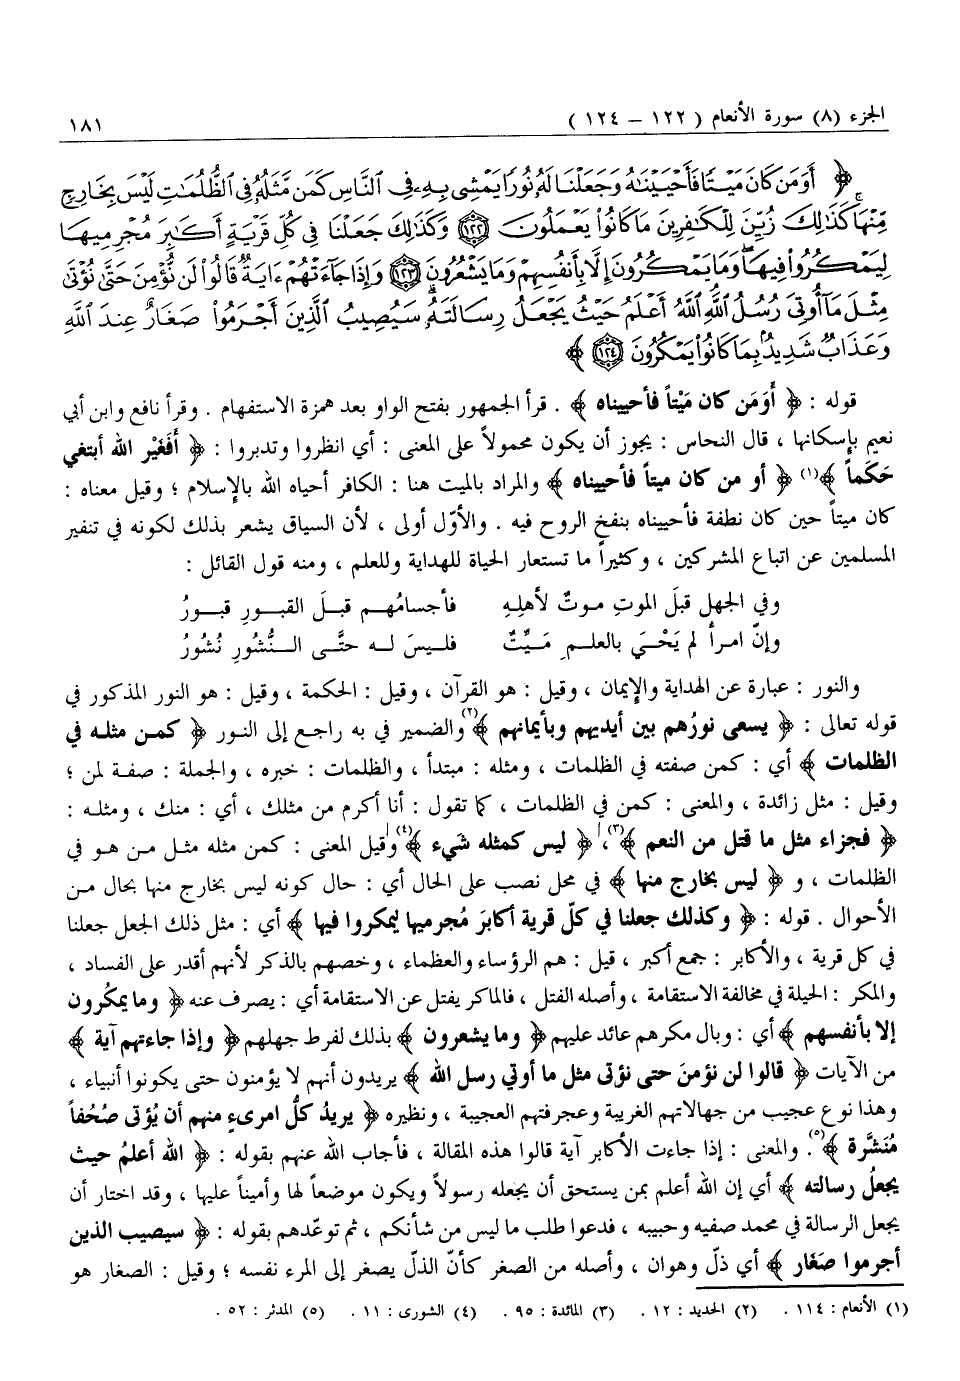 الجزء (٨) سورة الأنعام ( ١٢٢ – ١٢٤ ) ١٨١
﴿ أَوَمَن كَانَ مَيْتًا فَأَحْيَيْنَٰهُ وَجَعَلْنَا لَهُۥ نُورًا يَمْشِى بِهِۦ فِى ٱلنَّاسِ كَمَن مَّثَلُهُۥ فِى ٱلظُّلُمَٰتِ لَيْسَ بِخَارِجٍ
مِّنْهَا كَذَٰلِكَ زُيِّنَ لِلْكَٰفِرِينَ مَا كَانُوا۟ يَعْمَلُونَ ١٢٢ وَكَذَٰلِكَ جَعَلْنَا فِى كُلِّ قَرْيَةٍ أَكَٰبِرَ مُجْرِمِيهَا
لِيَمْكُرُوا۟ فِيهَا وَمَا يَمْكُرُونَ إِلَّا بِأَنفُسِهِمْ وَمَا يَشْعُرُونَ ١٢٣ وَإِذَا جَآءَتْهُمْ ءَايَةٌ قَالُوا۟ لَن نُّؤْمِنَ حَتَّىٰ نُؤْتَىٰ
مِثْلَ مَآ أُوتِىَ رُسُلُ ٱللَّهِ ٱللَّهُ أَعْلَمُ حَيْثُ يَجْعَلُ رِسَالَتَهُۥ سَيُصِيبُ ٱلَّذِينَ أَجْرَمُوا۟ صَغَارٌ عِندَ ٱللَّهِ
وَعَذَابٌ شَدِيدٌۢ بِمَا كَانُوا۟ يَمْكُرُونَ ١٢٤ ﴾
قوله : ﴿ أَوَمَن كان مَيْتاً فأحييناه ﴾ . قرأ الجمهور بفتح الواو بعد همزة الاستفهام . وقرأ نافع وابن أبي
نعيم بإسكانها ، قال النحاس : يجوز أن يكون محمولاً على المعنى : أي انظروا وتدبروا : ﴿ أَفَغَيْر الله أبتغي
حَكَماً ﴾(١) ﴿ أو من كان ميتاً فأحييناه ﴾ والمراد بالميت هنا : الكافر أحياه الله بالإسلام ؛ وقيل معناه :
كان ميتاً حين كان نطفة فأحييناه بنفخ الروح فيه . والأوّل أولى ، لأن السياق يشعر بذلك لكونه في تنفير
المسلمين عن اتباع المشركين ، وكثيراً ما تستعار الحياة للهداية وللعلم ، ومنه قول القائل :
وفي الجهل قبلَ الموتِ موتٌ لأهلِهِ فأجسامُهـم قبـلَ القبـورِ قبـورُ
وإنّ امـرأ لم يَحْـيَ بالعلـمِ مَـيِّتٌ فليـسَ لـه حتَّـى الـنُّشُورِ نُشُورُ
والنور : عبارة عن الهداية والإيمان ، وقيل : هو القرآن ، وقيل : الحكمة ، وقيل : هو النور المذكور في
قوله تعالى : ﴿ يسعى نورُهم بين أيديهم وبأيمانهم ﴾(٢) والضمير في به راجـع إلى النـور ﴿ كمـن مثلـه في
الظلمات ﴾ أي : كمن صفته في الظلمات ، ومثله : مبتدأ ، والظلمات : خبره ، والجملة : صفـة لمن ؛
وقيل : مثل زائدة ، والمعنى : كمن في الظلمات ، كما تقول : أنا أكرم من مثلك ، أي : منك ، ومثلـه :
﴿ فجزاء مثل ما قتل من النعم ﴾(٣)، ﴿ ليس كمثله شَيء ﴾(٤) وقيل المعنى : كمن مثله مثـل مـن هـو في
الظلمات ، و ﴿ ليس بخارج منها ﴾ في محل نصب على الحال أي : حال كونه ليس بخارج منها بحال مـن
الأحوال . قوله : ﴿ وكذلك جعلنا في كلّ قرية أكابرَ مُجرميها ليمكروا فيها ﴾ أي : مثل ذلك الجعل جعلنا
في كل قرية ، والأكابر : جمع أكبر ، قيل : هم الرؤساء والعظماء ، وخصهم بالذكر لأنهم أقدر على الفساد ،
والمكر : الحيلة في مخالفة الاستقامة ، وأصله الفتل ، فالماكر يفتل عن الاستقامة أي : يصرف عنه ﴿ وما يمكُرون
إلا بأنفسهم ﴾ أي : وبال مكرهم عائد عليهم ﴿ وما يشعرون ﴾ بذلك لفرط جهلهم ﴿ وإذا جاءتهم آية ﴾
من الآيات ﴿ قالوا لن نؤمنَ حتى نؤتى مثل ما أوتي رسل الله ﴾ يريدون أنهم لا يؤمنون حتى يكونوا أنبياء ،
وهذا نوع عجيب من جهالاتهم الغريبة وعجرفتهم العجيبة ، ونظيره ﴿ يريدُ كلُّ امرىءٍ منهم أن يُؤتى صُحُفاً
مُنَشَّرة ﴾(٥). والمعنى : إذا جاءت الأكابر آية قالوا هذه المقالة ، فأجاب الله عنهم بقوله : ﴿ الله أعلمُ حيث
يجعلُ رسالته ﴾ أي إن الله أعلم بمن يستحق أن يجعله رسولاً ويكون موضعاً لها وأميناً عليها ، وقد اختار أن
يجعل الرسالة في محمد صفيه وحبيبه ، فدعوا طلب ما ليس من شأنكم ، ثم توعّدهم بقوله : ﴿ سيصيب الذين
أجرموا صَغَار ﴾ أي ذلّ وهوان ، وأصله من الصغر كأنّ الذلّ يصغر إلى المرء نفسه ؛ وقيل : الصغار هو
(١) الأنعام : ١١٤ . (٢) الحديد : ١٢ . (٣) المائدة : ٩٥ . (٤) الشورى : ١١ . (٥) المدثر : ٥٢ .